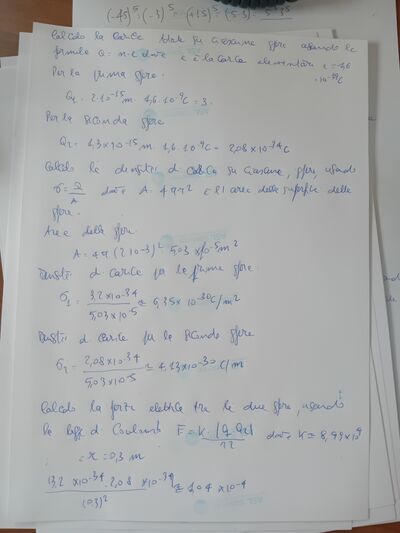 (-15)⁵ : (-3)⁵ = (+15) : (5 5) = 5
Calcolo la carica totale su ciascuna sfera usando la
formula Q = n·e dove e è la carica elementare e = -1,6
·10⁻¹⁹C
Per la prima sfera.
Q₁ = 2·10⁻¹⁵ m · 1,6 · 10⁻⁹C = 3.
Per la seconda sfera
Q₂ = 1,3×10⁻¹⁵ m · 1,6 · 10⁻⁹C = 2,08×10⁻³⁴C
Calcolo le densità di carica su ciascuna sfera, usando
σ = Q/A dove A = 4πr² è l'area della superficie della
sfera.
Area della sfera
A = 4π(2·10⁻³)² = 5,03×10⁻⁵m²
Densità di carica per la prima sfera.
σ₁ = 3,2×10⁻³⁴/5,03×10⁻⁵ ≅ 6,35×10⁻³⁰C/m²
Densità di carica per la seconda sfera
σ₂ = 2,08×10⁻³⁴/5,03×10⁻⁵ ≅ 4,13×10⁻³⁰ C/m
Calcolo la forza elettrica tra le due sfere, usando
la legge di Coulomb F = K · |Q₁Q₂|/r2 dove K = 8,99×10⁹
= r = 0,3 m
|3,2 ×10⁻³⁴ · 2,08 ×10⁻³⁴|/(0,3)² ≅ 1,04 ×10⁻⁴